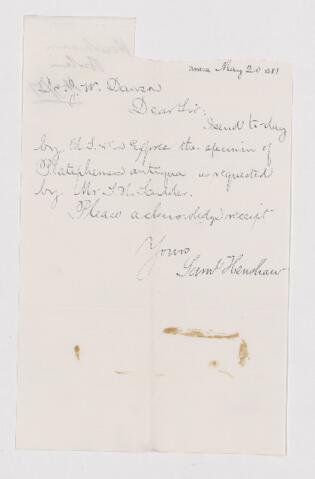 May 20 1881
J. W. Dawson
Dear Sir:
I send to-day
by Express the specimen of
Platephemera antiqua as requested
by Mr.
Please acknowledge receipt
Yours
Saml Henshaw